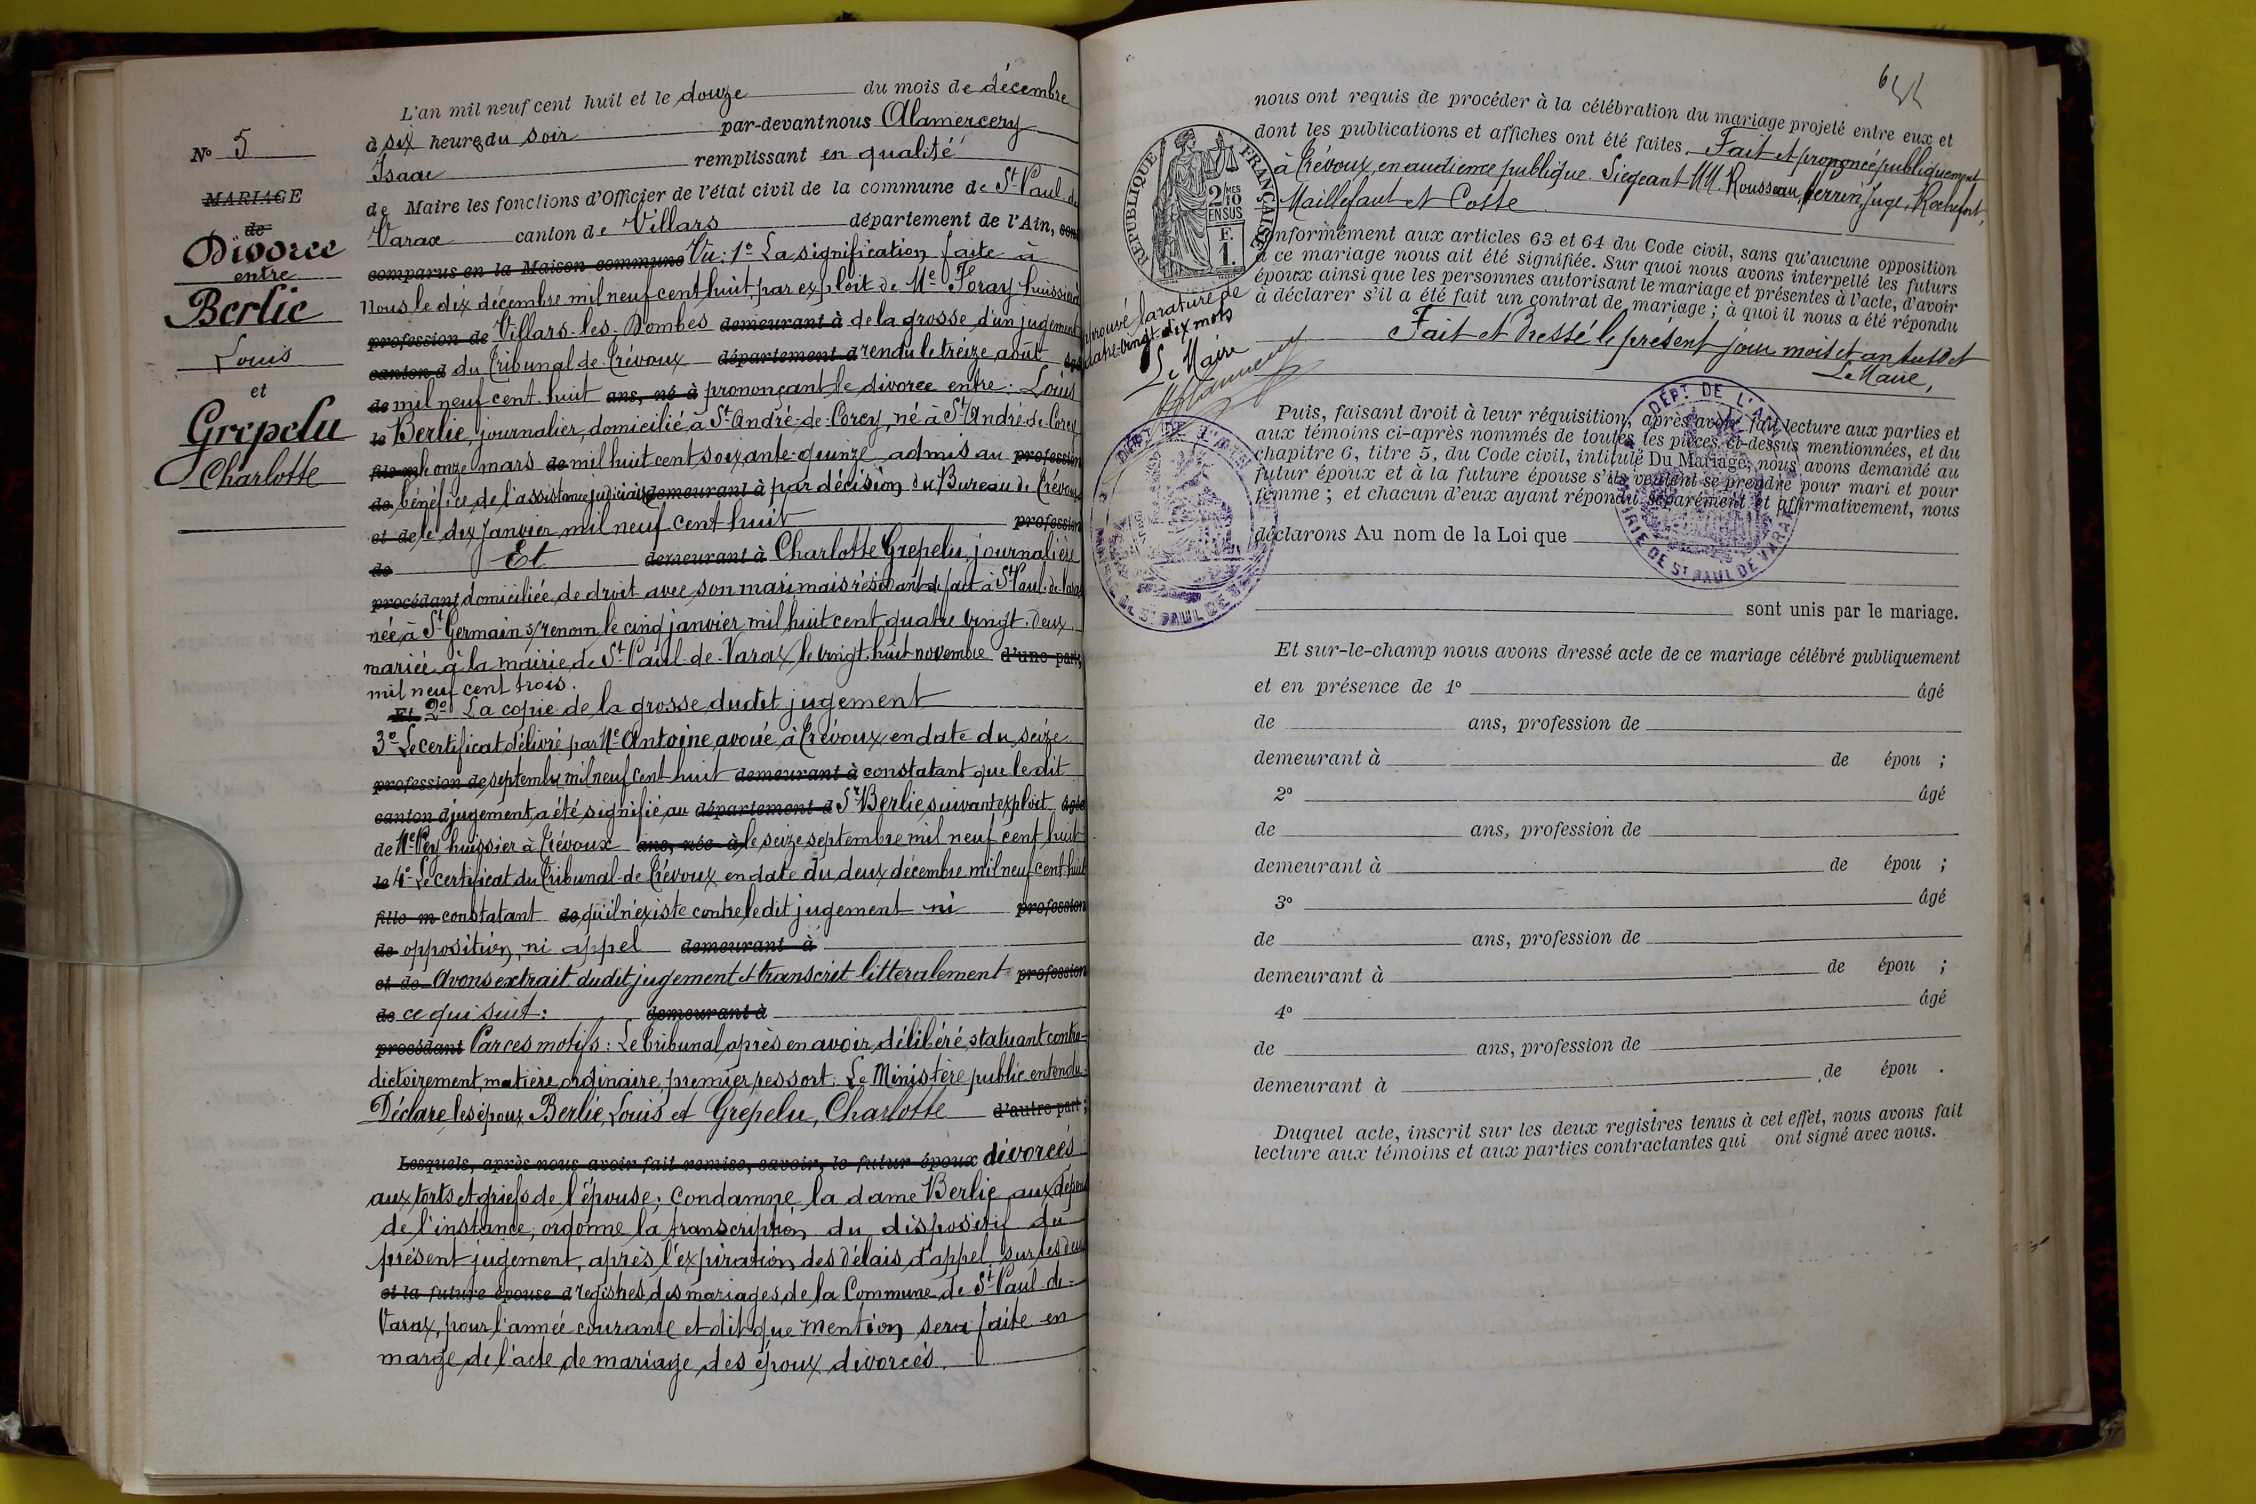 L'an mil neuf cent huit et le douze du mois de décembre
à six heures du soir par-devant nous Alamercery
Isaac remplissant en qualité
de Maire les fonctions d'Officier de l'état civil de la commune de St Paul de
Varax canton de Villars département de l'Ain,
comparus en la Maison commune Vu: 1° La signification faite à
Nous le dix décembre mil neuf cent huit, par exploit de Me Foray huissier à
profession de Villars-les-Dombes demeurant à de la grosse d'un jugement
canton d du Tribunal de Trévoux département d rendu le treize août
de mil neuf cent huit ans, né à prononçant le divorce entre: Louis
le Berlie, journalier, domicilié à St André-de-Corcy, né à St André-de-Corcy
fils m le onze mars de mil huit cent soixante-quinze, admis au profession
de bénéfice de l'assistance judiciaire demeurant à par décision du Bureau de Trévoux
et de le dix Janvier mil neuf cent huit profession
de Et demeurant à Charlotte Grepelu, journalière
procédant domiciliée de droit avec son mari mais résidant de fait à St Paul-de-Varax
née à St Germain s/ renom le cinq janvier mil huit cent quatre vingt-deux
mariée à la mairie de St Paul-de-Varax le vingt huit novembre d'une part,
mil neuf cent trois.
Et 2° La copie de la grosse dudit jugement
3° Le certificat délivré par Me Antoine, avoué à Trévoux en date du seize
profession de septembre mil neuf cent huit demeurant à constatant que le dit
canton d jugement a été signifié au département d Sr Berlie suivant exploit âgée
de Me Pey huissier à Trévoux ans, née à le seize septembre mil neuf cent huit
le 4° Le certificat du Tribunal de Trévoux en date du deux décembre mil neuf cent huit
fille m constatant de qu'il n'existe contre le dit jugement ni profession
de opposition, ni appel demeurant à
et de Avons extrait dudit jugement et transcrit littéralement profession
de ce qui suit: demeurant à
procédant Par ces motifs: Le Tribunal après en avoir délibéré, statuant contra-
dictoirement, matière ordinaire, premier ressort. Le Ministère public entendu.
Déclare les époux Berlie, Louis et Grepelu, Charlotte d'autre part;
Lesquels, après nous avoir fait remise, savoir, le futur époux divorcés
aux torts et griefs de l'épouse; condamne la dame Berlie aux dépens
de l'instance; ordonne la transcription du dispositif du
présent jugement, après l'expiration des délais d'appel, sur les deux
et la future épouse d registres des mariages de la Commune de St Paul de-
Varax, pour l'année courante et dit que mention sera faite en
marge de l'acte de mariage des époux divorcés.
N° 5
MARIAGE
de
Divorce
entre
Berlie
Louis
et
Grepelu
Charlotte
nous ont requis de procéder à la célébration du mariage projeté entre eux et
dont les publications et affiches ont été faites Fait et prononcé publiquement
à Trévoux, en audience publique. Siegeant MM. Rousseau, Perrin, Juge, Rochefort,
Maillefaut et Coste
conformément aux articles 63 et 64 du Code civil, sans qu'aucune opposition
à ce mariage nous ait été signifiée. Sur quoi nous avons interpellé les futurs
époux ainsi que les personnes autorisant le mariage et présentes à l'acte, d'avoir
à déclarer s'il a été fait un contrat de mariage; à quoi il nous a été répondu
Fait et Dressé le présent jour mois et an susdit
Le Maire,
RÉPUBLIQUE FRANÇAISE
2 MES
10
EN SUS
F.
1.
Le Maire
Puis, faisant droit à leur réquisition, après avoir fait lecture aux parties et
aux témoins ci-après nommés de toutes les pièces ci-dessus mentionnées, et du
chapitre 6, titre 5, du Code civil, intitulé Du Mariage, nous avons demandé au
futur époux et à la future épouse s'ils veulent se prendre pour mari et pour
femme; et chacun d'eux ayant répondu séparément et affirmativement, nous
déclarons Au nom de la Loi que
DÉPT DE L'AIN
MAIRIE DE ST PAUL DE VARAX
DÉPT DE L'AIN
MAIRIE DE ST PAUL DE VARAX
sont unis par le mariage.
Et sur-le-champ nous avons dressé acte de ce mariage célébré publiquement
et en présence de 1° âgé
de ans, profession de
demeurant à de épou ;
2° âgé
de ans, profession de
demeurant à de épou ;
3° âgé
de ans, profession de
demeurant à de épou ;
4° âgé
de ans, profession de
demeurant à de épou .
Duquel acte, inscrit sur les deux registres tenus à cet effet, nous avons fait
lecture aux témoins et aux parties contractantes qui ont signé avec nous.